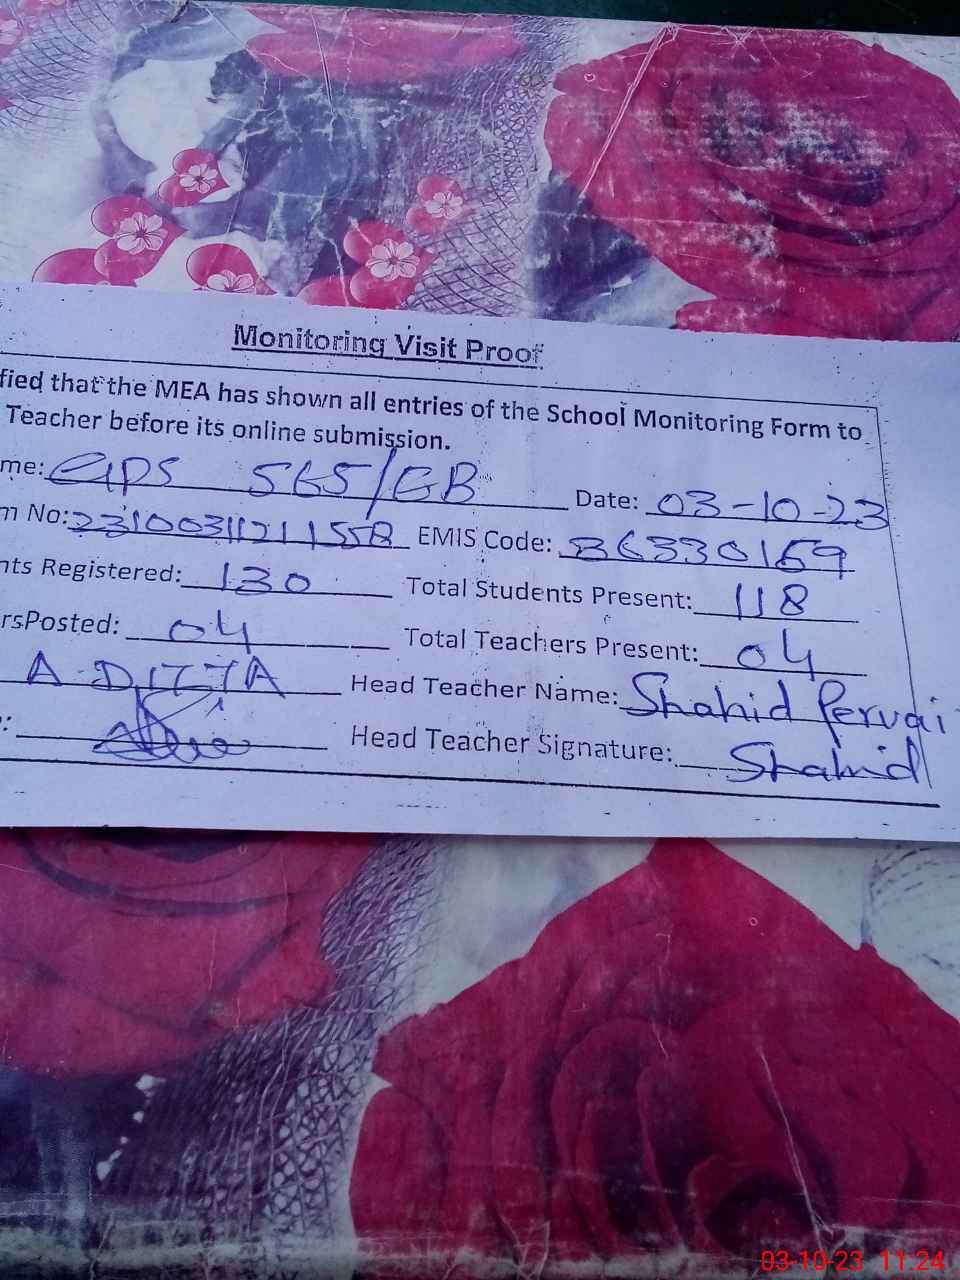 Monitoring Visit Proof
fied that the MEA has shown all entries of the School Monitoring Form to
Teacher before its online submission.
me: GPS 565/GB Date: 03-10-23
m No: 231003112111558 EMIS Code: 86330169
nts Registered: 130 Total Students Present: 118
rsPosted: 04 Total Teachers Present: 04
A-DITTA Head Teacher Name: Shahid Pervai
: Head Teacher Signature: Shahid
03-10-23 11:24